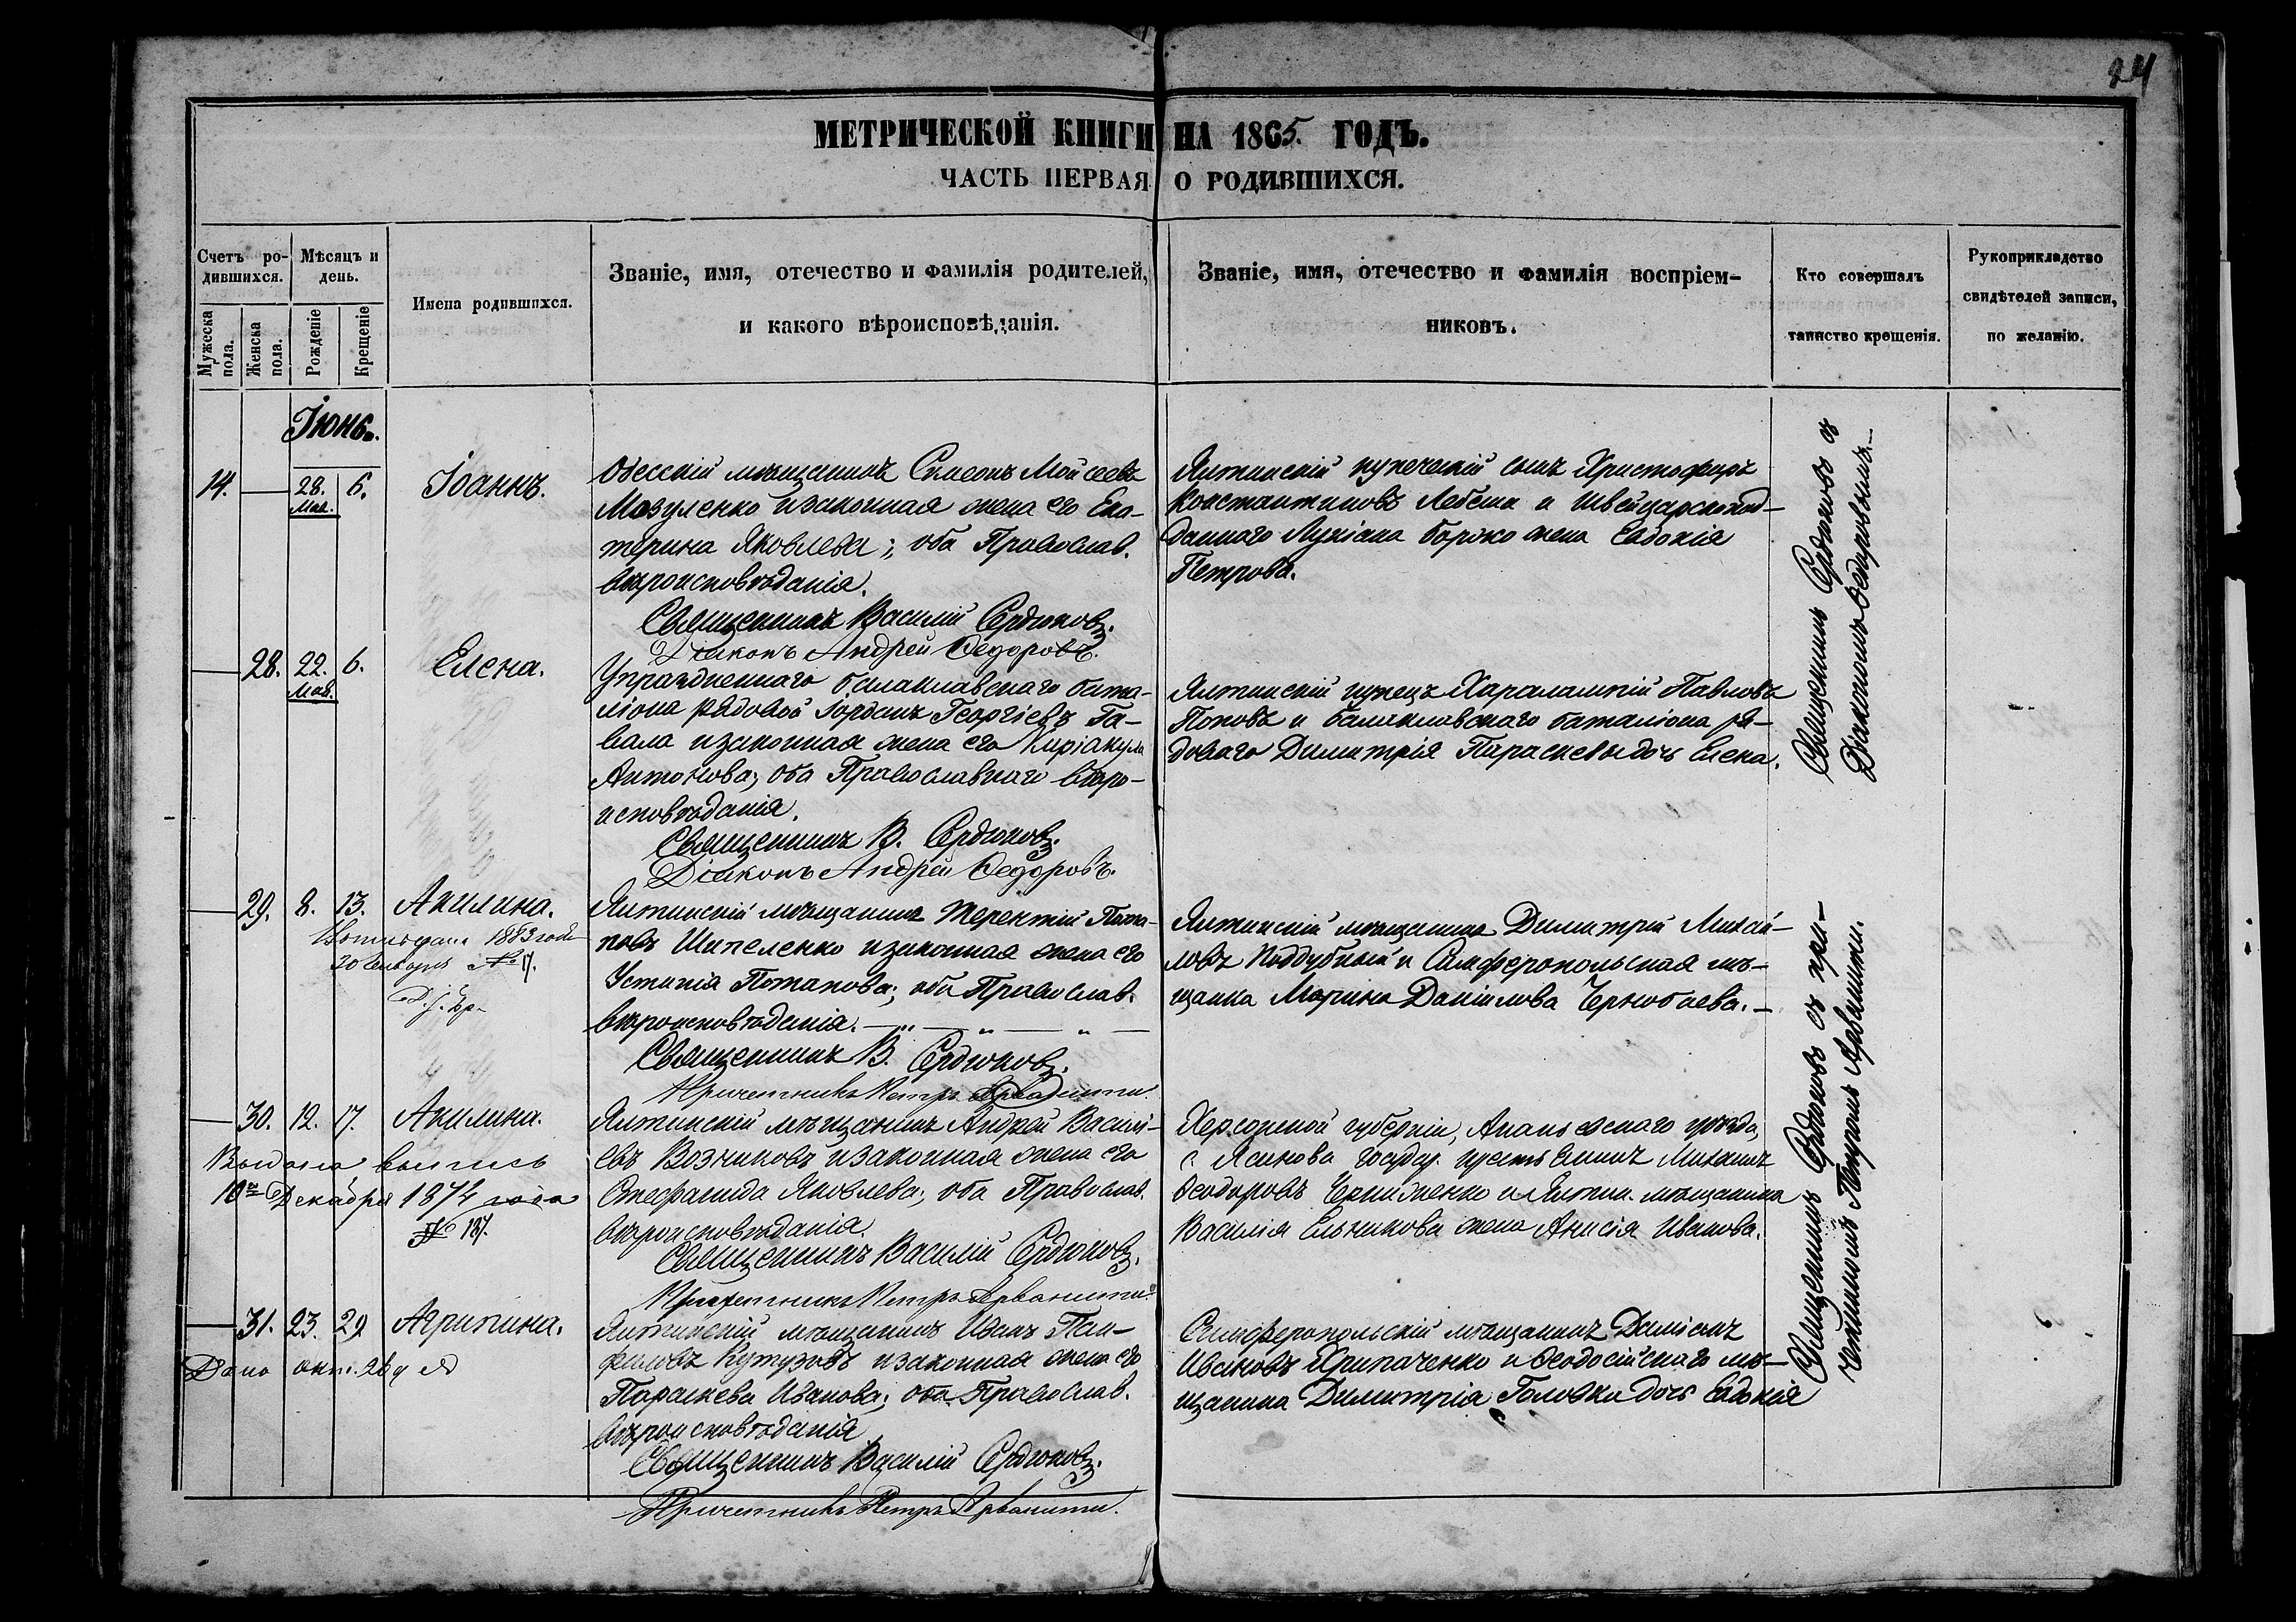 24
МЕТРИЧЕСКОЙ КНИГИ НА 1865. ГОДЪ.
ЧАСТЬ ПЕРВАЯ О РОДИВШИХСЯ.
Счетъ ро-
дившихся.
Мужеска пола.
Женска пола.
Мѣсяцъ и
день.
Рожденіе
Крещеніе
Имена родившихся.
Званіе, имя, отечество и фамилія родителей,
и какого вѣроисповѣданія.
Званіе, имя, отечество и фамилія воспріем-
никовъ.
Кто совершалъ
таинство крещенія.
Рукоприкладство
свидѣтелей записи,
по желанію.
Іюнь.
14. — 28. Мая. 6. Іоаннъ.
Одесскій мѣщанинъ Симеонъ Мойсеевъ
Мозуленко и законная жена его Ека-
терина Яковлева; оба Православ.
вѣроисповѣданія.
Священникъ Василій Сердюковъ.
Діаконъ Андрей Ѳедоровъ.
Ялтинскій купеческій сынъ Христофоръ
Константиновъ и Швейцарскопод-
даннаго Лукіана жена Евдокія
Петрова.
Священникъ Сердюковъ съ
Діакономъ Ѳедоровымъ.—
— 28. 22. Мая. 6. Елена.
Упраздненнаго балаклавскаго бата-
ліона рядовой Іорданъ Георгіевъ Га-
вала и законная жена его Киріакула
Антонова; оба Православнаго вѣро-
исповѣданія.
Священникъ В. Сердюковъ.
Діаконъ Андрей Ѳедоровъ.
Ялтинскій купецъ Харалампій Павловъ
Поповъ и балаклавскаго баталіона ря-
доваго Димитрія Параскевы дочь Елена.
— 29. 8. 13. Акилина.
1883 года
20 Января № 17.
Ялтинскій мѣщанинъ Терентій Пота-
повъ Шипеленко и законная жена его
Устинія Потапова; оба Православ.
вѣроисповѣданія. — „ — „ — „ —
Священникъ В. Сердюковъ.
Причетникъ Петръ Арванити.
Ялтинскій мѣщанинъ Димитрій Михай-
ловъ Поддубный и Симферопольская мѣ-
щанка Марина Даніилова Чернобаева. —
Священникъ Сердюковъ съ при-
четникомъ Петромъ Арванити.
— 30. 12. 17. Акилина.
Выдана выпись
10го Декабря 1874 года
№ 137.
Ялтинскій мѣщанинъ Андрей Василі-
евъ Возниковъ и законная жена его
Стефанида Яковлева; оба Православ.
вѣроисповѣданія.
Священникъ Василій Сердюковъ.
Причетникъ Петръ Арванити
Херсонской губерніи, Ананьевскаго уѣзда,
с. Ясинова государ. крестьянинъ Михаилъ
Ѳеодоровъ и Ялтин. мѣщанина
Василія Ельникова жена Анисія Иванова.
— 31. 23. 29 Агрипина.
Дано окт. 26
Ялтинскій мѣщанинъ Иванъ Пан-
филовъ Кутузовъ и законная жена его
Параскева Иванова; оба Православ.
вѣроисповѣданія
Священникъ Василій Сердюковъ.
Причетникъ Петръ Арванити.
Симферопольскій мѣщанинъ Даміанъ
Ивановъ Хрипаченко и Ѳеодосійскаго мѣ-
щанина Димитрія Головки дочь Евдокія